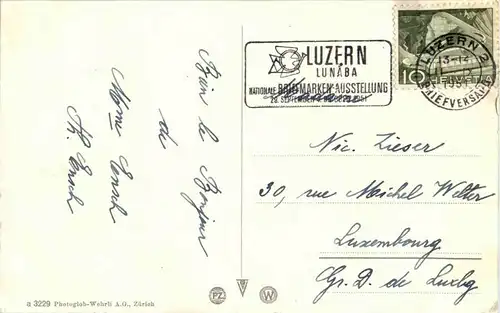 Bien le Bonjour
de
Mome Ensch
Th. Ensch
LUZERN
LUNABA
NATIONALE BRIEFMARKEN-AUSSTELLUNG
LUZERN 2
BRIEFVERSAND
10
HELVETIA
Nic. Zieser
30, rue Michel Welter
Luxembourg
Gr. D. de Luxbg
a 3229 Photoglob-Wehrli A.G., Zürich
PZ
W